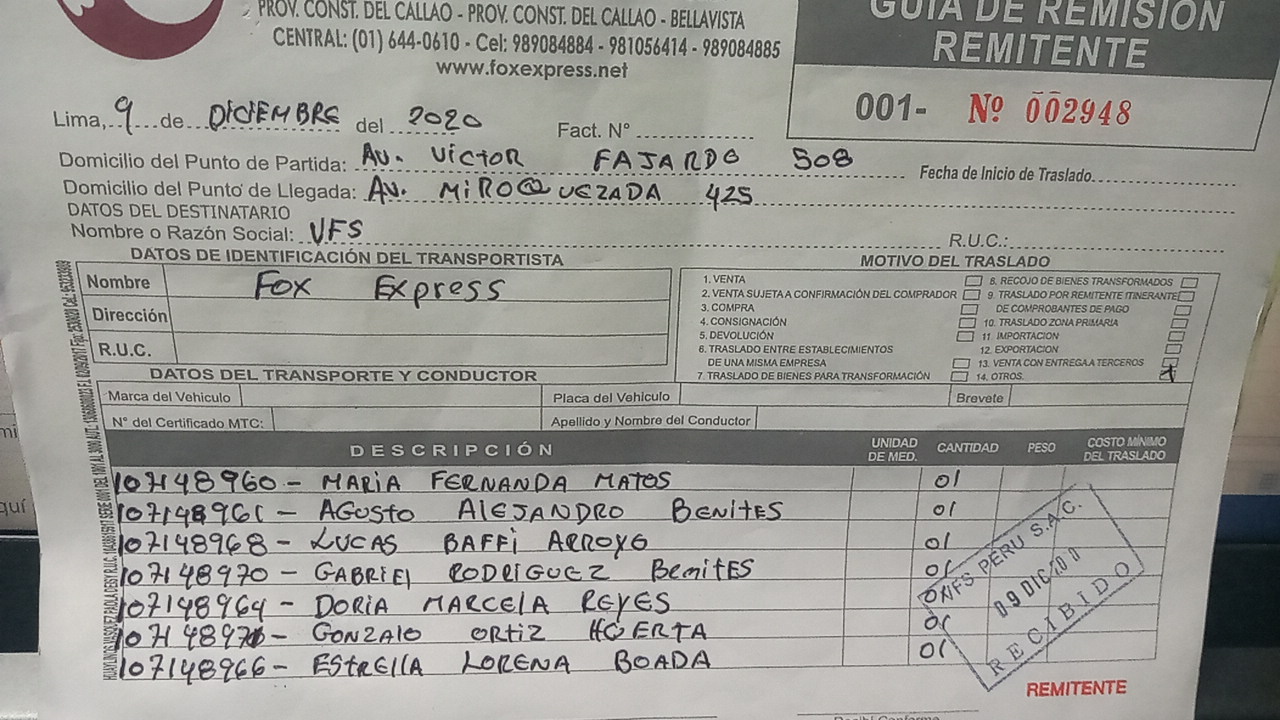 PROV. CONST. DEL CALLAO - PROV. CONST. DEL CALLAO - BELLAVISTA
CENTRAL: (01) 644-0610 - Cel: 989084884 - 981056414 - 989084885
www.foxexpress.net
GUIA DE REMISIÓN
REMITENTE
001- Nº 002948
Lima, 9 de DICIEMBRE del 2020 Fact. N°
Domicilio del Punto de Partida: AV. VICTOR FAJARDO 508 Fecha de Inicio de Traslado.
Domicilio del Punto de Llegada: AV. MIROQUEZADA 425
DATOS DEL DESTINATARIO
Nombre o Razón Social: VFS R.U.C.:
DATOS DE IDENTIFICACIÓN DEL TRANSPORTISTA
Nombre FOX Express
Dirección
R.U.C.
MOTIVO DEL TRASLADO
1. VENTA
2. VENTA SUJETA A CONFIRMACIÓN DEL COMPRADOR
3. COMPRA
4. CONSIGNACIÓN
5. DEVOLUCIÓN
6. TRASLADO ENTRE ESTABLECIMIENTOS
DE UNA MISMA EMPRESA
7. TRASLADO DE BIENES PARA TRANSFORMACIÓN
8. RECOJO DE BIENES TRANSFORMADOS
9. TRASLADO POR REMITENTE ITINERANTE
DE COMPROBANTES DE PAGO
10. TRASLADO ZONA PRIMARIA
11. IMPORTACION
12. EXPORTACION
13. VENTA CON ENTREGA A TERCEROS
14. OTROS. X
DATOS DEL TRANSPORTE Y CONDUCTOR
Marca del Vehículo Placa del Vehículo Brevete
N° del Certificado MTC: Apellido y Nombre del Conductor
DESCRIPCIÓN UNIDAD DE MED. CANTIDAD PESO COSTO MÍNIMO DEL TRASLADO
107148960 - MARIA FERNANDA MATOS 01
107148961 - AGUSTO ALEJANDRO BENITES 01
107148968 - LUCAS BAFFI ARROYO 01
107148970 - GABRIEL RODRIGUEZ BENITES 01
107148964 - DORIA MARCELA REYES 01
107148971 - GONZALO ORTIZ HOERTA 01
107148966 - ESTRELLA LORENA BOADA 01
VFS PERU S.A.C.
09 DIC
RECIBIDO
REMITENTE